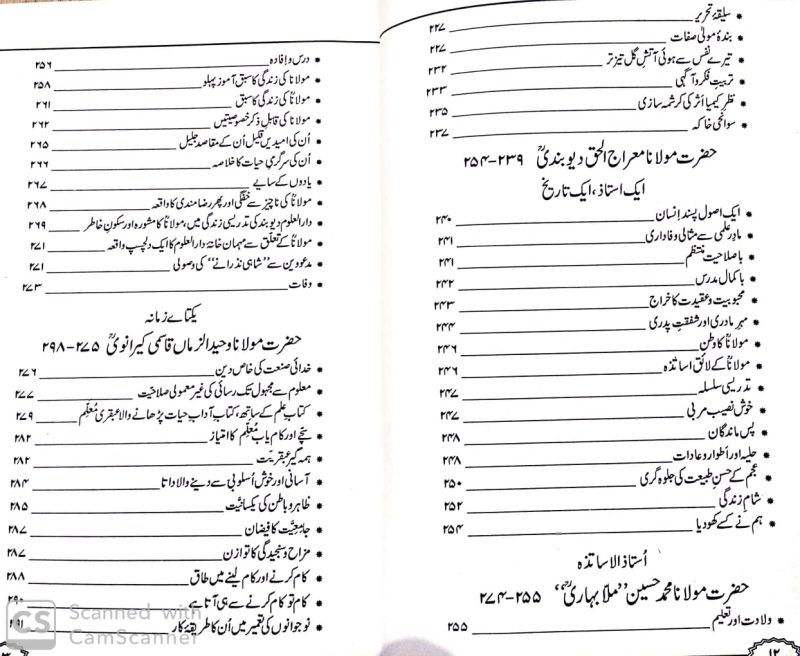 سلیقۂ تحریر ۲۲۷
بندۂ مولیٰ صفات ۲۲۷
تیرے نفَس سے ہوئی آتشِ گل تیز تر ۲۳۲
تربیتِ فکر و آگہی ۲۳۳
نظرِ کیمیا اثر کی کرشمہ سازی ۲۳۵
سوانحی خاکہ ۲۳۷
حضرت مولانا معراج الحق دیوبندیؒ ۲۳۹-۲۵۴
ایک استاذ، ایک تاریخ
ایک اصول پسند انسان ۲۴۰
مادرِ علمی سے مثالی وفاداری ۲۴۱
باصلاحیت منتظم ۲۴۱
باکمال مدرس ۲۴۲
محبوبیت و عقیدت کا خراج ۲۴۳
مہرِ مادری اور شفقتِ پدری ۲۴۴
مولاناؒ کا وطن ۲۴۶
مولاناؒ کے لائق اساتذہ ۲۴۶
تدریسی سلسلہ ۲۴۷
خوش نصیب مربی ۲۴۷
پس ماندگان ۲۴۸
حلیہ اور اطوار و عادات ۲۴۸
عجم کے حسنِ طبیعت کی جلوہ گری ۲۵۰
شامِ زندگی ۲۵۲
ہم نے کسے کھودیا ۲۵۴
اُستاذ الاساتذہ
حضرت مولانا محمد حسین ’’ملاّ بہاریؒ‘‘ ۲۵۵-۲۷۴
ولادت اور تعلیم ۲۵۵
۱۲
درس و افادہ ۲۵۶
مولاناؒ کی زندگی کا سبق آموز پہلو ۲۵۸
مولاناؒ کی زندگی کا سبق ۲۶۱
مولانا کی قابلِ ذکر خصوصیتیں ۲۶۲
اُن کی امیدیں قلیل اُن کے مقاصد جلیل ۲۶۵
اُن کی سرگرمیِ حیات کا خلاصہ ۲۶۶
یادوں کے سایے ۲۶۷
مولاناؒ کی ناچیز سے خفگی اور پھر رضامندی کا واقعہ ۲۶۸
دارالعلوم دیوبند کی تدریسی زندگی میں، مولاناؒ کا مشورہ اور سکونِ خاطر ۲۶۹
مولاناؒ کے تعلق سے مہمان خانۂ دارالعلوم کا ایک دلچسپ واقعہ ۲۷۱
مدعووین سے ’’شاہی نذرانے‘‘ کی وصولی ۲۷۱
وفات ۲۷۳
یکتاے زمانہ
حضرت مولانا وحید الزماں قاسمی کیرانویؒ ۲۷۵-۲۹۸
خدائی صنعت کی خاص دین ۲۷۶
معلوم سے مجہول تک رسائی کی غیر معمولی صلاحیّت ۲۷۷
کتابِ علم کے ساتھ، کتابِ آدابِ حیات پڑھانے والا عبقری مُعلّم ۲۷۹
سچّے اور کام یاب مُعلّم کا امتیاز ۲۸۲
ہمہ گیر عبقریت ۲۸۲
آسانی اور خوش اُسلوبی سے دینے والا داتا ۲۸۴
ظاہر و باطن کی یکسانیّت ۲۸۵
جامعیّت کا فیضان ۲۸۷
مزاح و سنجیدگی کا توازن ۲۸۷
کام کرنے اور کام لینے میں طاق ۲۸۸
کام تو کام کرنے سے ہی آتا ہے ۲۹۰
نوجوانوں کی تعمیر میں اُن کا طریقۂ کار ۲۹۱
CS Scanned with
CamScanner